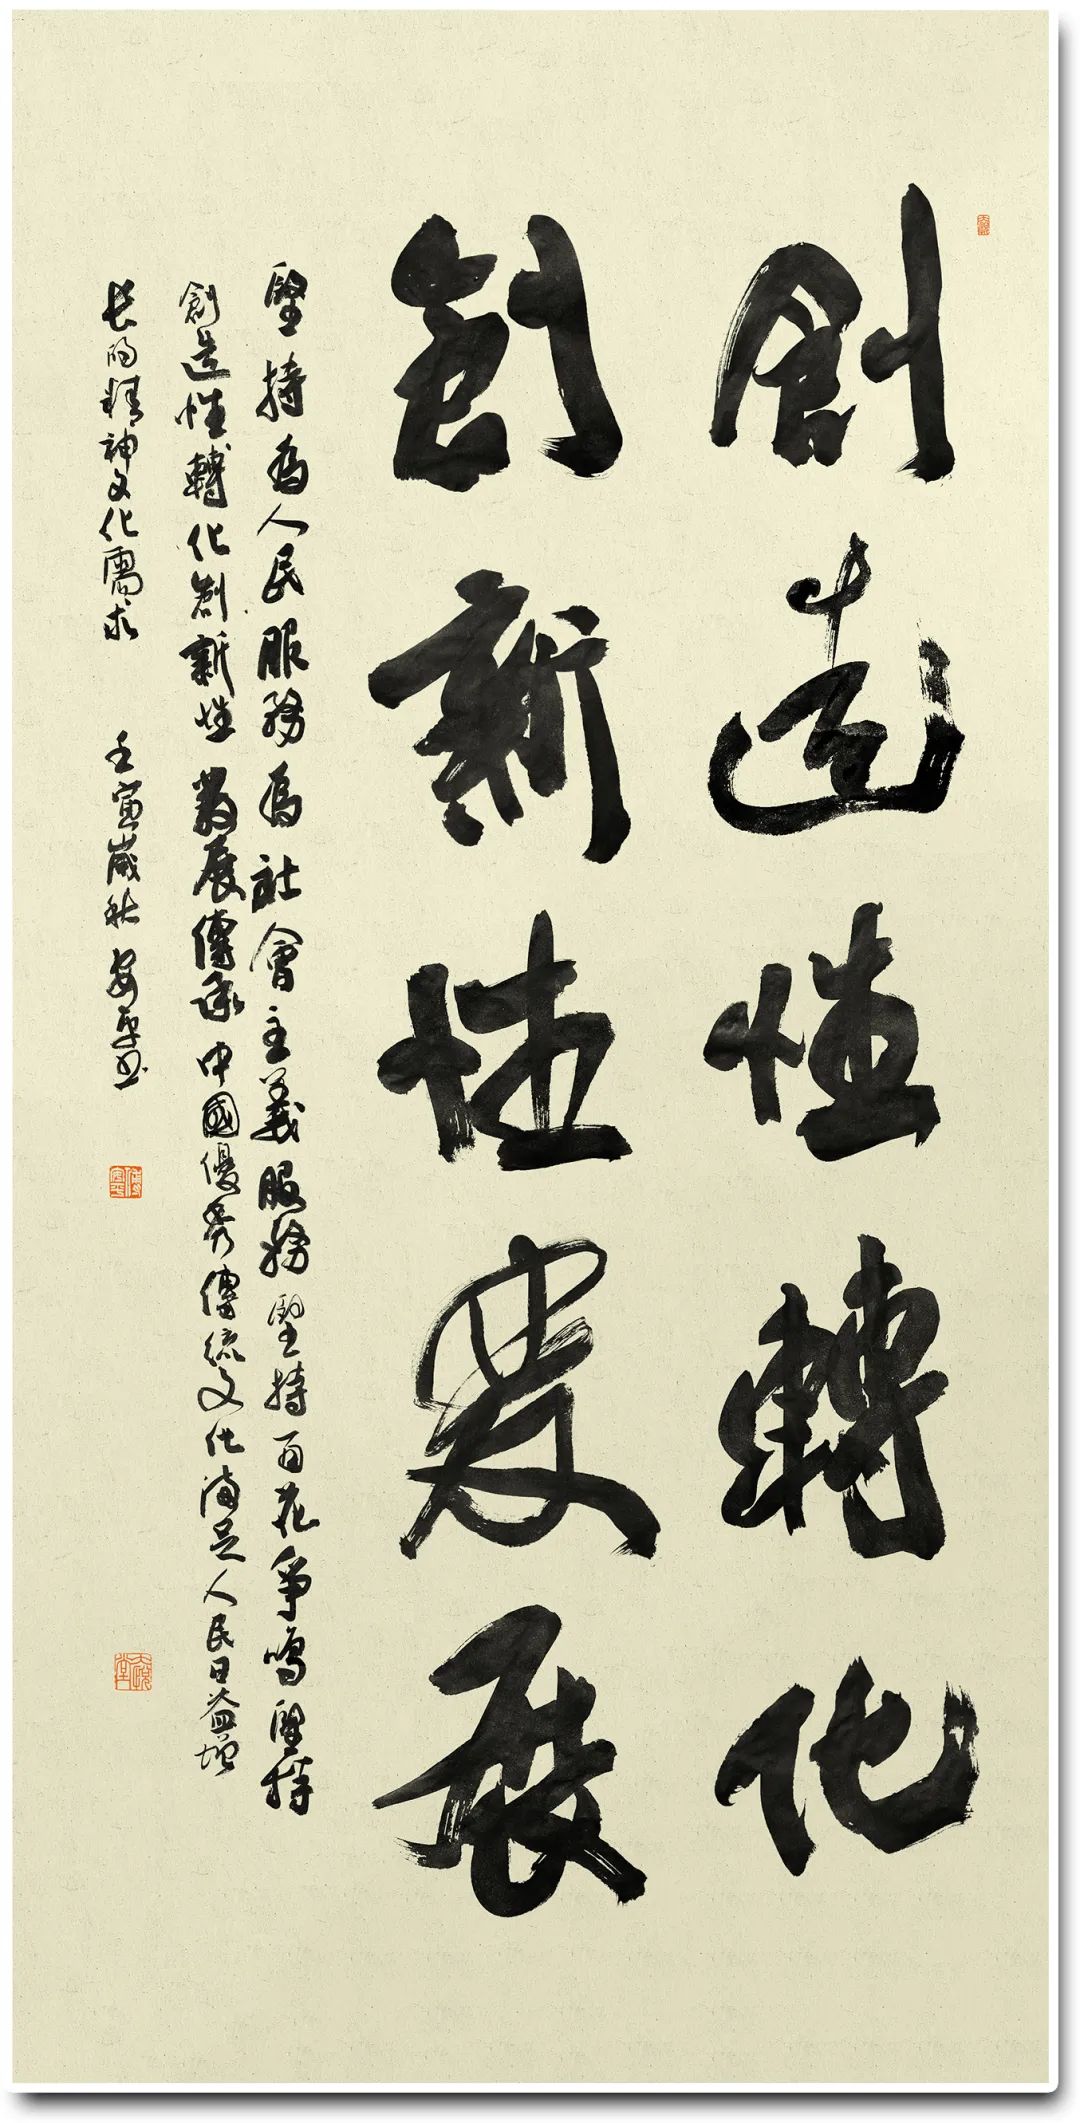 創造性轉化
創新性發展
堅持為人民服務為社會主義服務堅持百花爭鳴堅持
創造性轉化創新性發展傳承中國優秀傳統文化滿足人民日益增
長的精神文化需求
壬寅歲秋安平書